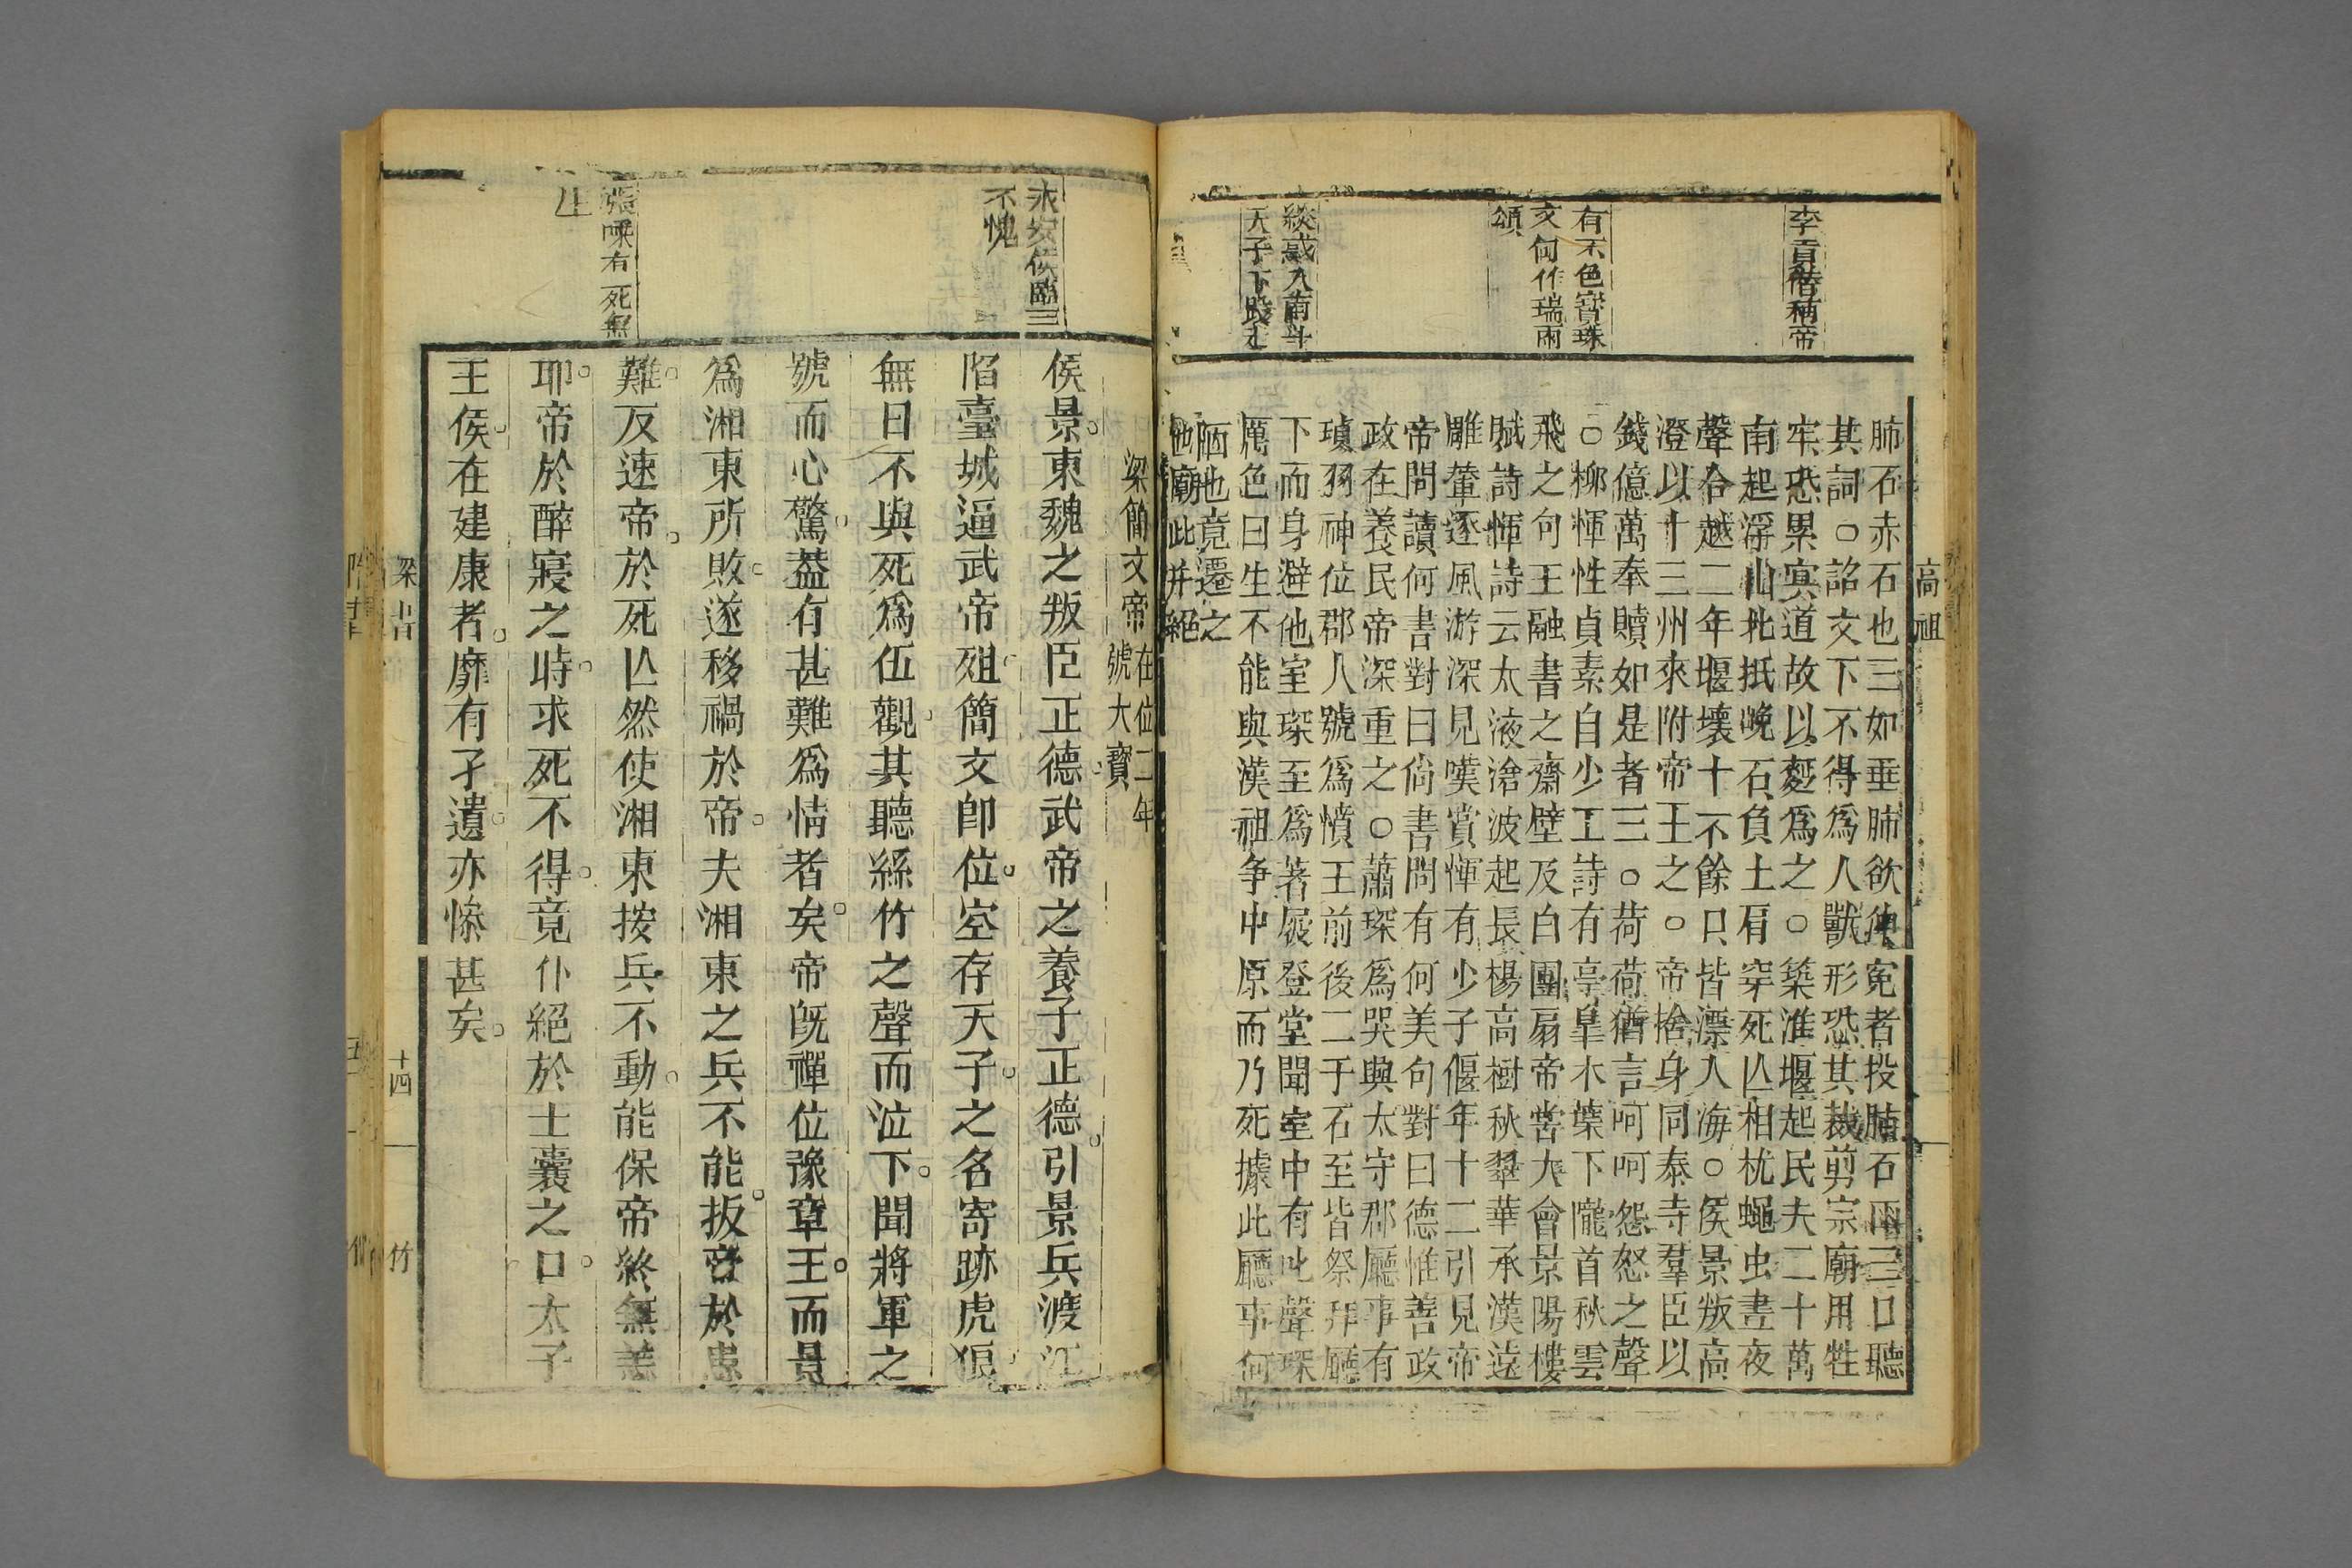 高祖
李賁僭稱帝
有不色寶珠
文何作瑞雨
頌
入南斗
天子下殿走
肺石赤石也三如垂肺欲伸冤者投肺石函三日聽
其詞○詔文下不得爲人獸形恐其裁剪宗廟用牲
牢恐累冥道故以麪爲之○築淮堰起民夫二十萬
南起浮山北抵巉石負土肩穿死亾相枕蠅虫晝夜
聲合越二年堰壞十不餘只皆漂入海○侯景叛高
澄以十三州來附帝王之○帝捨身同泰寺羣臣以
錢億萬奉贖如是者三○荷荷猶言呵呵怨怒之聲
○柳惲性貞素自少工詩有亭皐木葉下隴首秋雲
飛之句王融書之齋壁及白團扇帝甞大會景陽樓
賦詩惲詩云太液滄波起長楊高樹秋翠華承漢遠
雕輦逐風游深見嘆賞惲有少子偃年十二引見帝
帝問讀何書對曰尙書問有何美句對曰德惟善政
政在養民帝深重之○蕭琛爲吳興太守郡廳事有
項羽神位郡人號爲憤王前後二千石至皆祭拜廳
下而身避他室琛至爲著屐登堂聞室中有叱聲琛
厲色曰生不能與漢祖争中原而乃死據此廳事何
陋也竟遷之
他廟此并絕
永安侯臨三
不愧
張嵊有死無
梁簡文帝
在位二年
號大寶
侯景東魏之叛臣正德武帝之養子正德引景兵渡江
陷臺城逼武帝殂簡文卽位空存天子之名寄跡虎狼
無日不與死爲伍觀其聽絲竹之聲而泣下聞將軍之
號而心驚葢有甚難爲情者矣帝旣禪位豫章王而景
爲湘東所敗遂移禍於帝夫湘東之兵不能扳帝於患
難反速帝於死亾然使湘東按兵不動能保帝終無恙
耶帝於醉寢之時求死不得竟仆絕於土囊之口太子
王侯在建康者靡有孑遺亦慘甚矣
梁書
十四
竹